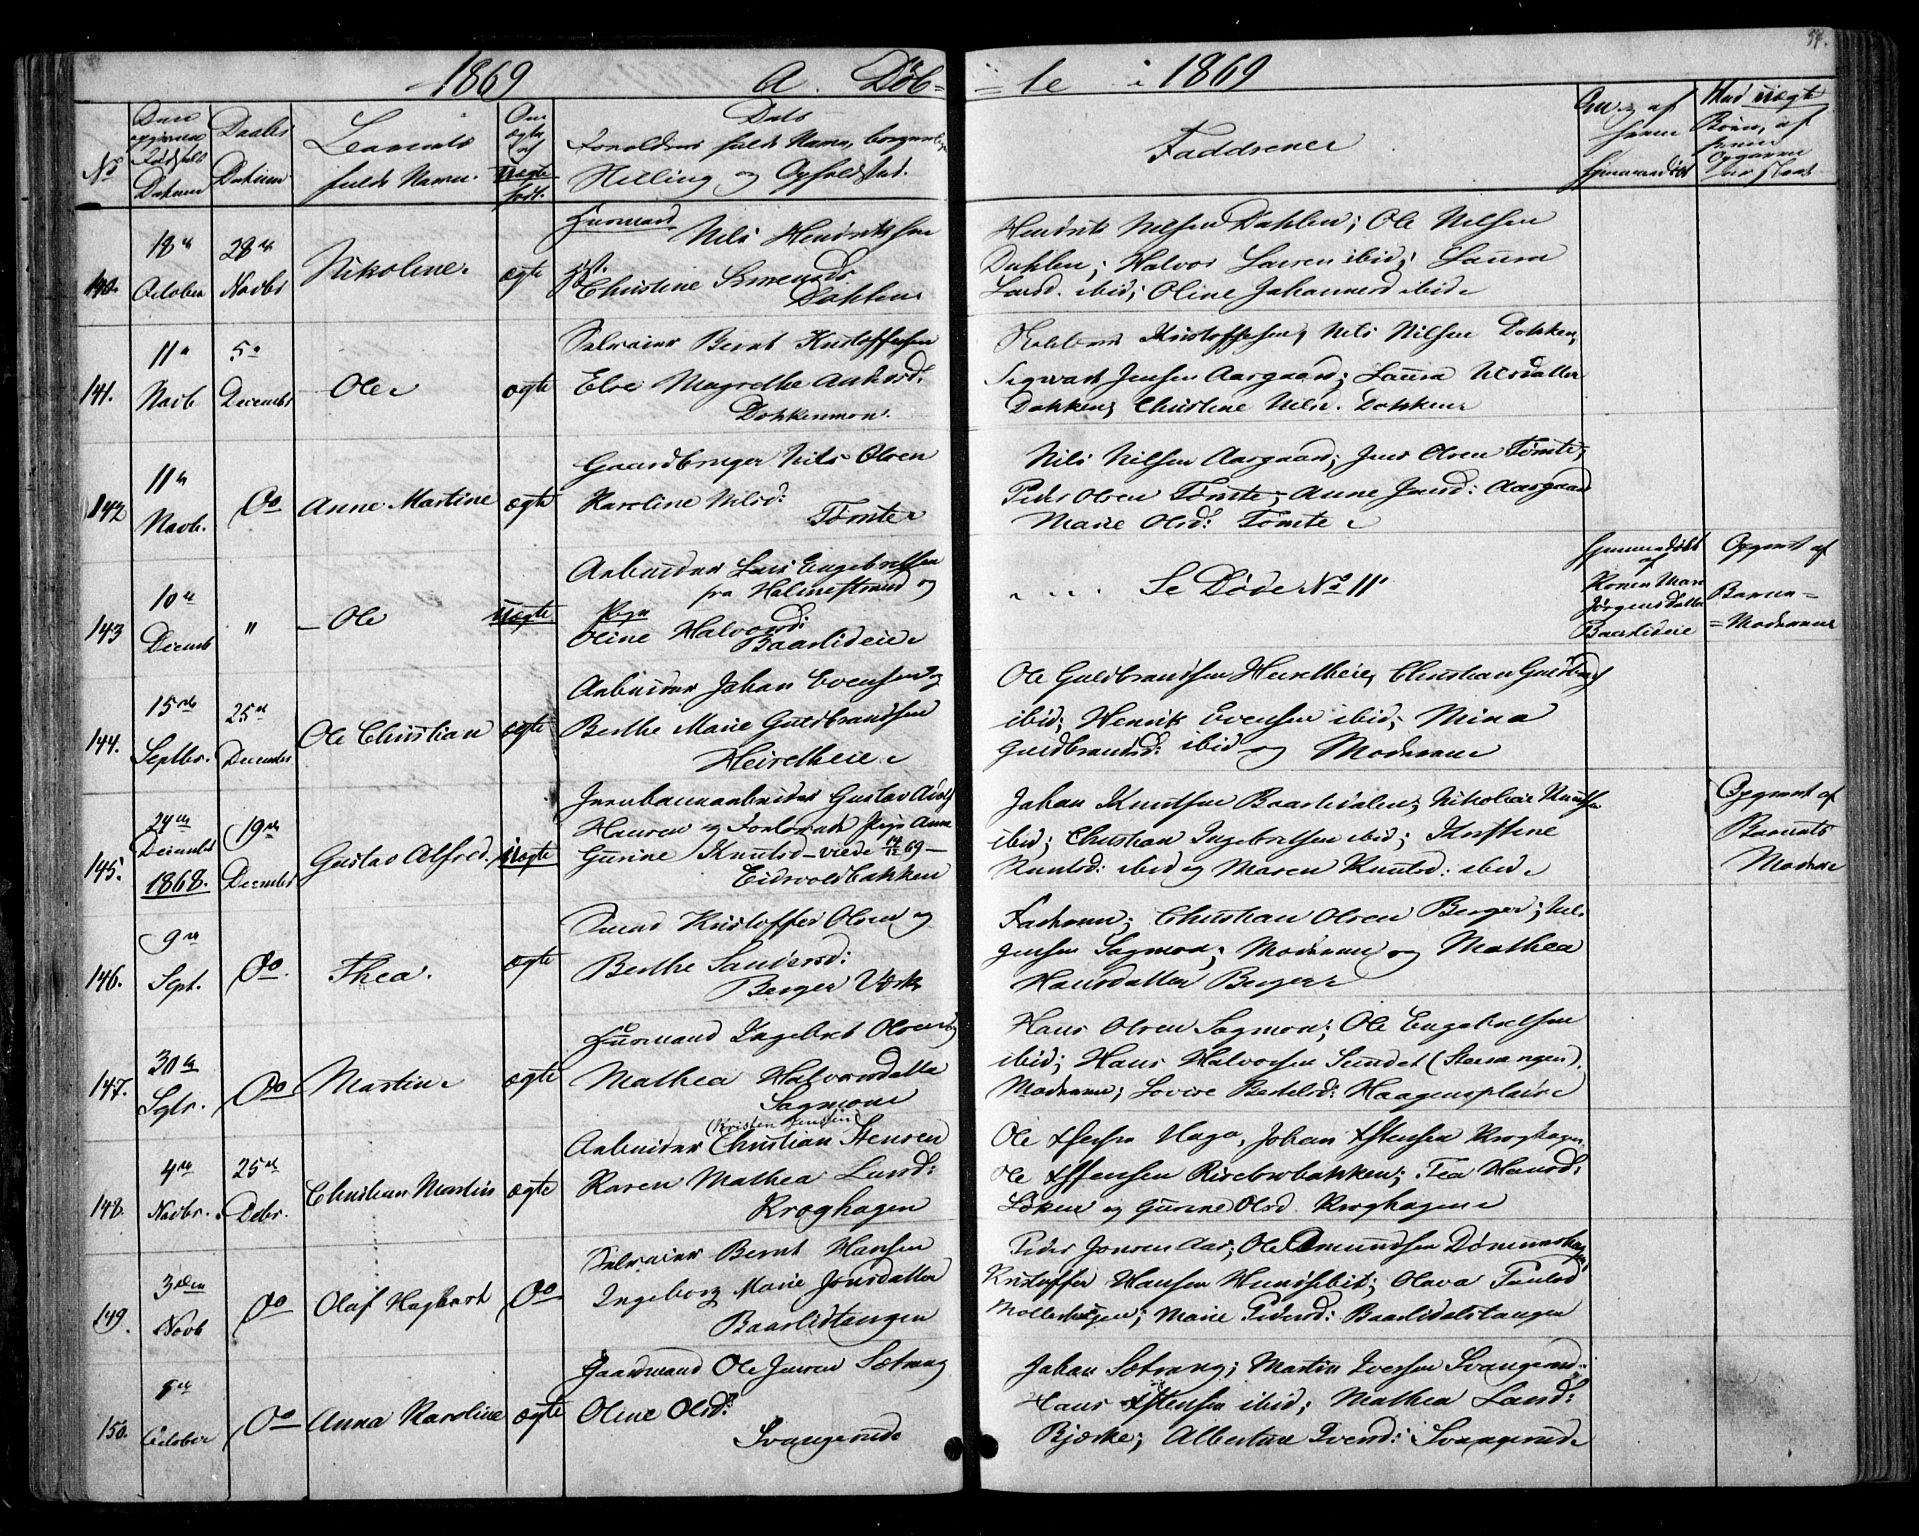 1869 A. Døb- te i 1869
54.
No
Datum
Daabs Datum
Barnets fulde Navn.
ægte
Uægte født.
Forældres fulde Navn, borgerlige
Stilling og Opholdsted.
Faddrene
af hvem
Hjemmedøbt
Ved Uægte
Børn, af
hvem
140. 18de October 28de Novbr Nikoline. ægte
Husmand Nils Henriksen
Christine
Dahlen
Henrik Nilsen Dahlen; Ole Nilsen
Dahlen; Halvor Larsen ibid; Laura
Larsd. ibid; Oline Johannesd ibid
141. 11te Novb 5te Decembr Ole ægte
Selveier Bernt Kristoffersen
Else Magrethe
Dokkenmoen.
Kristoffersen, Nils Nilsen Dokken,
Sigvart Jensen Aargaard; Laura Nilsdatter
Dokken; Christine Nilsd. Dokken
142 11te Novb. Do Anne Martine ægte
Gaardbruger Nils Olsen
Karoline Nilsd:
Tømte
Nils Nilsen Aargaard; Jens Olsen Tømte;
Peder Olsen Tømte; Anne Jensd: Aargaard
Marie Olsd: Tømte
143 10de Decemb " Ole Uægte
Arbeider Lars Engebretsen
fra Holmestrand og
Pige
Oline Halvorsd:
Baarlideie
Se Døde No 11
Hjemmedøbt
af
Konen Mari
Jørgensdatter
Baarlideie
Opgivet af
Barne=
=Moderen
144. 15de Septbr. 25de Decembr Ole Christian ægte
Arbeider Johan Evensen og
Berthe Marie Guldbrandsen
Heiretheie
Ole Guldbrandsen Heiretheie, Christian Guldbrds
ibid; Henrik Evensen ibid; Mina
Guldbrandsd: ibid og Moderen
145. 24de Decembr 1868. 19de Decembr Gustav Alfred. Uægte
Jernbanearbeider Gustav Adolf
Hansen og Forlovede Pige Anne
Gurine Knutsd – viede 69 –
Eidsvoldbakken
Johan Knutsen Baarlidalen; Nikolai Knutsen
ibid; Christian Ingebretsen ibid; Kristine
Knutsd: ibid og Maren Knutsd: ibid
Opgivet af
Barnets
Moder
146. 9de Sept. Do Thea. ægte
Smed Kristoffer Olsen og
Berthe Sandersd:
Berger Værk
Faderen; Christian Olsen Berger; Nils
Jensen Sagmoen; Moderen og Mathea
Hansdatter Berger
147. 30te Sptr. Do Martin ægte
Husmand Ingebret Olsen og
Mathea Halvorsdatter
Sagmoen
Hans Olsen Sagmoen; Ole Engebretsen
ibid; Hans Halvorsen Sundet (Stensrangen)
Moderen; Lovise Bertelsd: Haagensplads
148. 4de Novbr. 25de Debr. Christian Martin ægte
(Kristen Stensen)
Arbeider Christian Stensen
Karen Mathea Larsd:
Kroghagen
Ole Haga, Johan Kroghagen
Ole Risebrobakken; Tea Hansd:
Løken og Gurine Olsd Kroghagen
149. 3den Novb Do Olaf Hagbart Do
Selveier Bernt Hansen
Ingeborg Marie Jonsdatter
Baarlidtangen
Peder Jonsen Aas; Ole Amundsen
Kristoffer Hansen Hundsebit; Olava Paulsd
Marie Pedersd: Baarlidalstangen
150. October Do Anna Karoline ægte
Gaardmand Ole Jensen Sætrang
Oline Olsd:
Svangerud
Johan Sætrang; Martin Iversen Svangerud
Hans ibid; Mathea Larsd:
Bjærke; Albertine Iversd: Svangerud